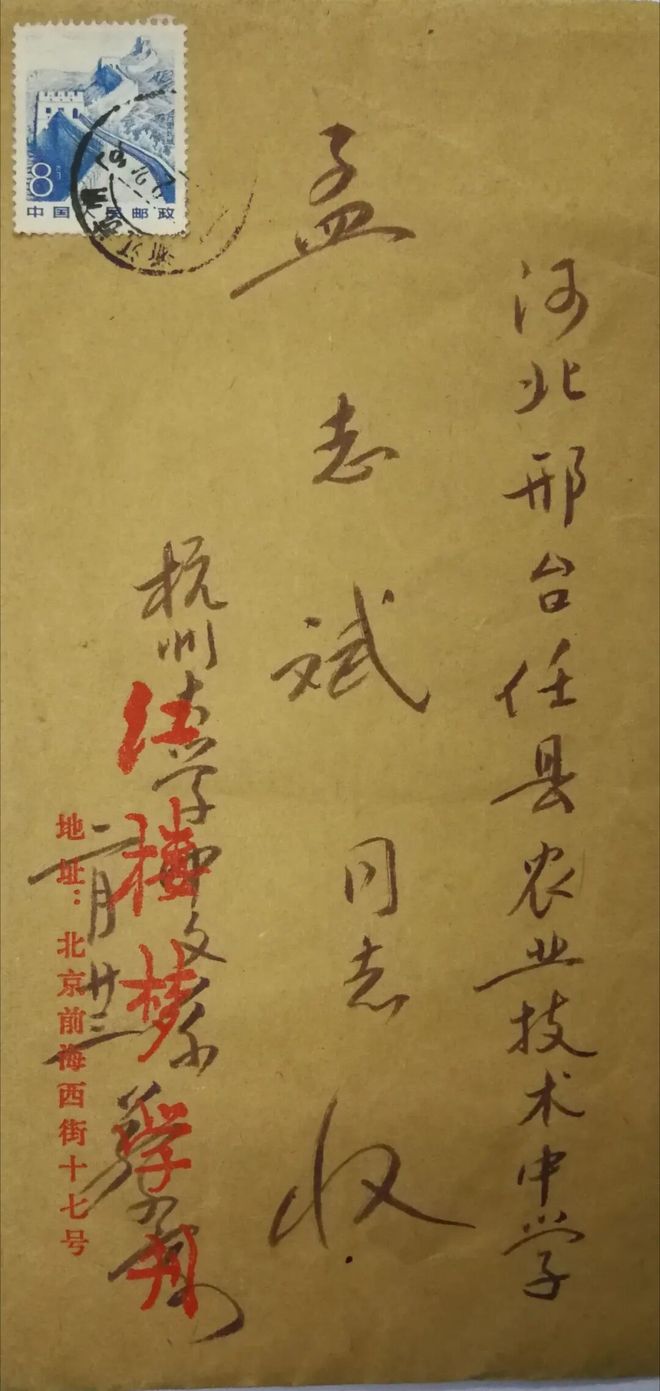 河北邢台任县农业技术中学
孟志斌同志收
杭州大学中文系
蔡
二月廿三
红楼梦学刊
地址：北京前海西街十七号
8
中国人民邮政
浙江杭州